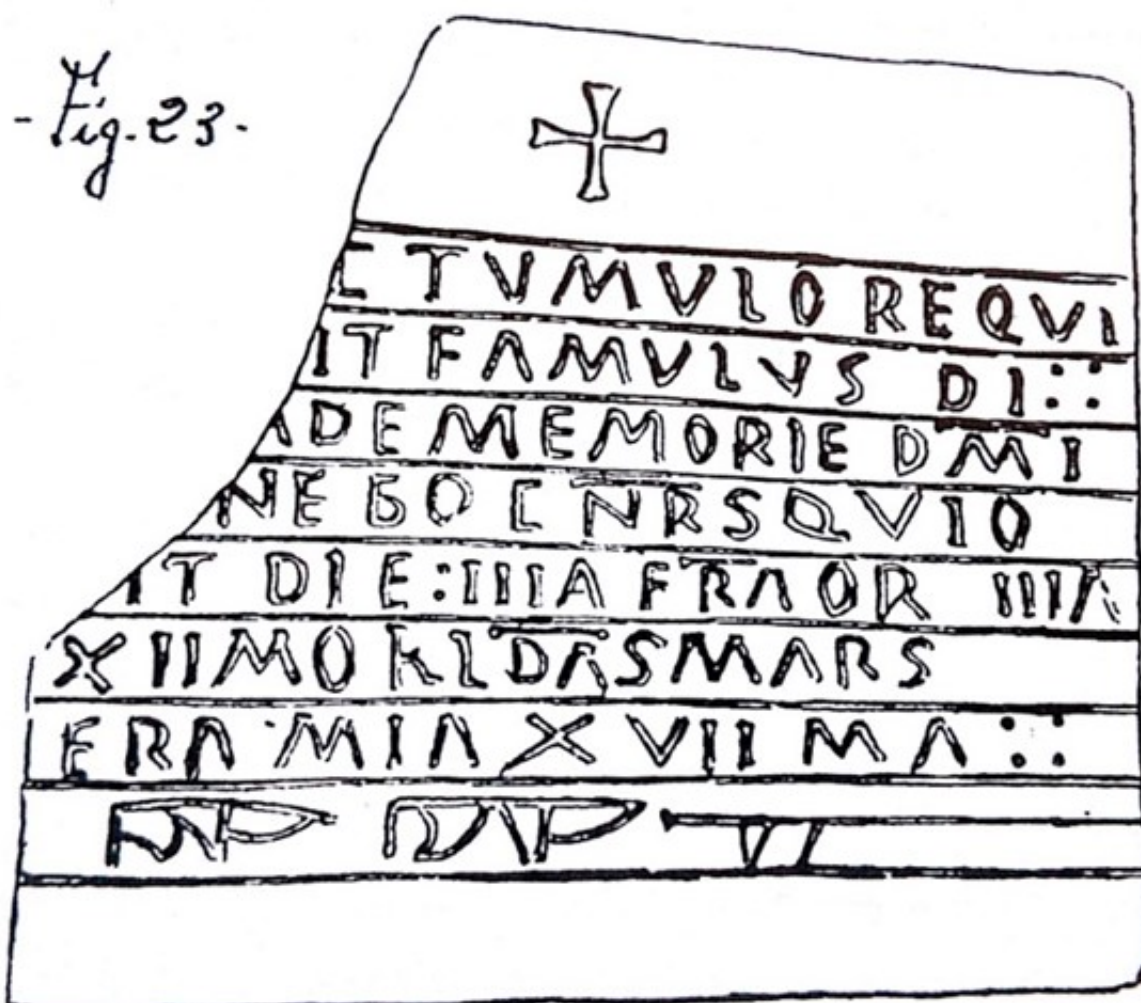 - Fig. 23 -
C TVMVLO REQVI
IT FAMVLVS DI ::
ADE MEMORIE DMI
NE BO C NRS QVIO
IT DIE : IIIIA FRA OR IIIIA
XII MO KLDAS MARS
ERA MIA XVII MA ::